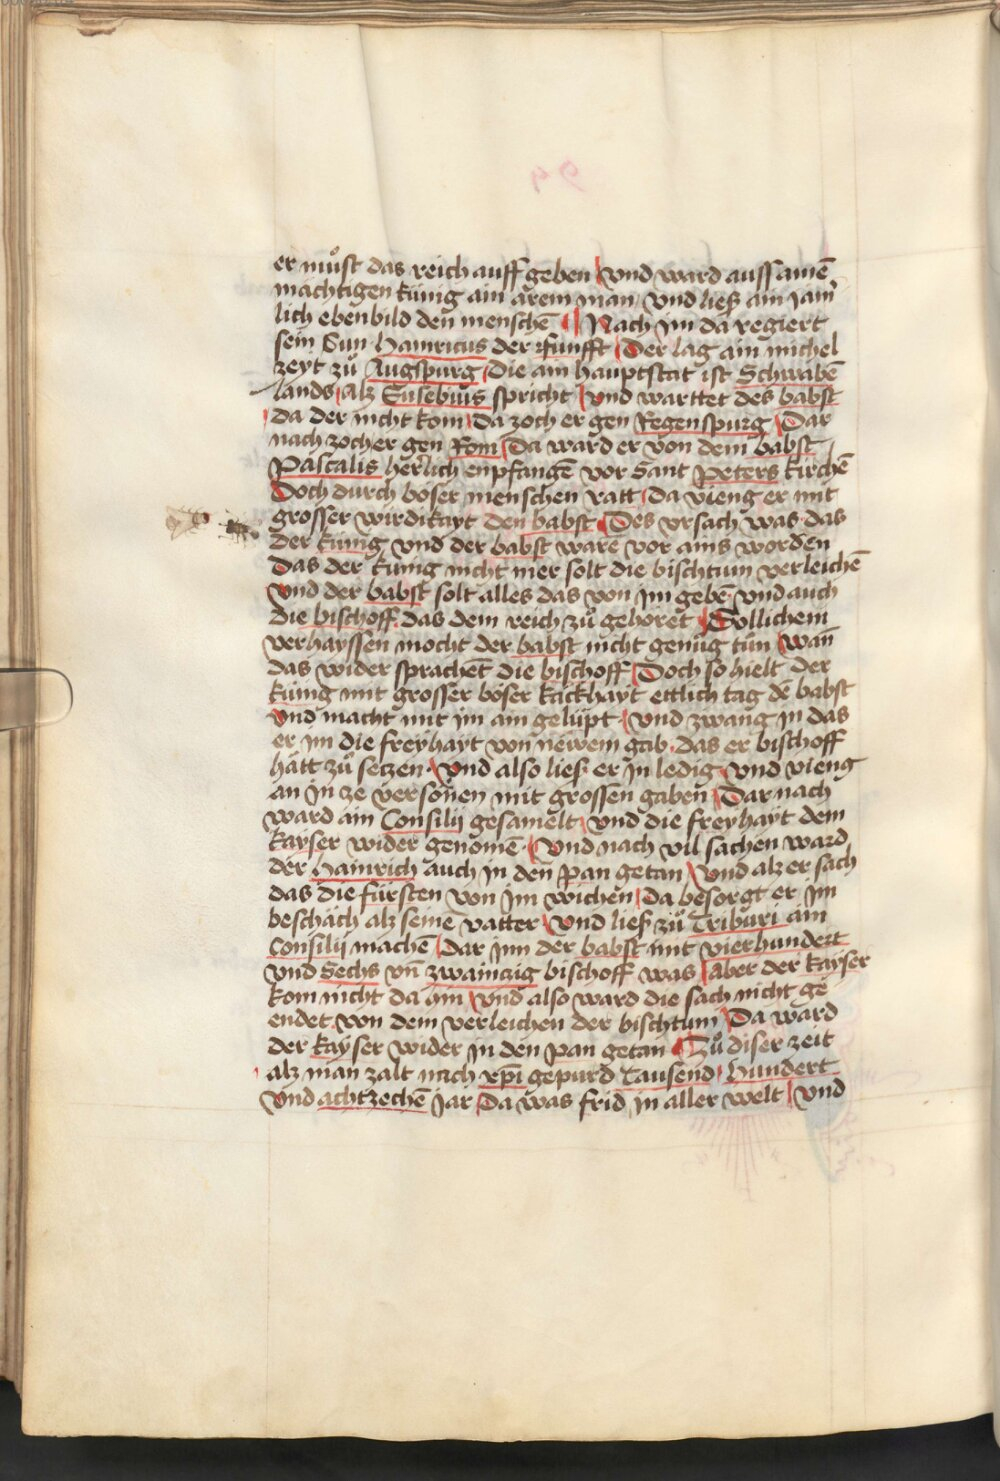 er můst das reich auff geben vnd ward auss ainē
mächtigen künig ain arem man vnd ließ ain iām̄
lich ebenbild den menschē Nach im da regiert
sein Sun Hainricus der fünfft Der lag ain michel
zeyt zů Augspurg Die ain hauptstat ist Schwabē
lands Alz Eusebius spricht vnd warttet des babst
da der nicht kom Da zoch er gen Regenspurg Dar
nach zoch er gen Rom Da ward er von dem babst
Pascalis herlich enpfangē vor Sant Peters kirchē
Doch durch böser menschen ratt Da vieng er mit
grosser wirdikayt den babst Des vrsach was das
der künig vnd der babst ware vor ains worden
Das der künig nicht mer solt die bischtum verleichē
vnd der babst solt alles das von im gebē vnd auch
die bischoff das dem reich zů gehöret Söllichem
verhayssen mocht der babst nicht genüg tün wān
das wider sprachēt die bischoff Doch so hielt der
küng mit grosser böser käckhayt ettlich tag dē babst
vnd macht mit im ain gelüpt vnd zwang in das
er im die freyhayt von newem gab das er bischoff
hätt zů setzen vnd also ließ er in ledig vnd vieng
an in ze versönen mit grossen gaben Dar nach
ward ain Consilij gesamelt vnd die freyhayt dem
kayser wider genomē vnd nach vil sachen ward
der Hainrich auch in den pan getan vnd alz er sach
das die fürsten von im wichen Da besorgt er im
beschäch alz seinē vatter vnd ließ zů Triburi ain
Consilij machē Dar inn der babst mit vierhundert
vnd Sechs vn̄ zwainzig bischoff was Aber der kayser
kom nicht da hin vnd also ward die sach nicht ge
endet von dem verleichen der bischtum Da ward
der kayser wider in den pan getan Zů diser zeit
alz man zalt nach xp̄i gepurd Tausend hundert
vnd achtzechē Jar Da was frid in aller welt vnd